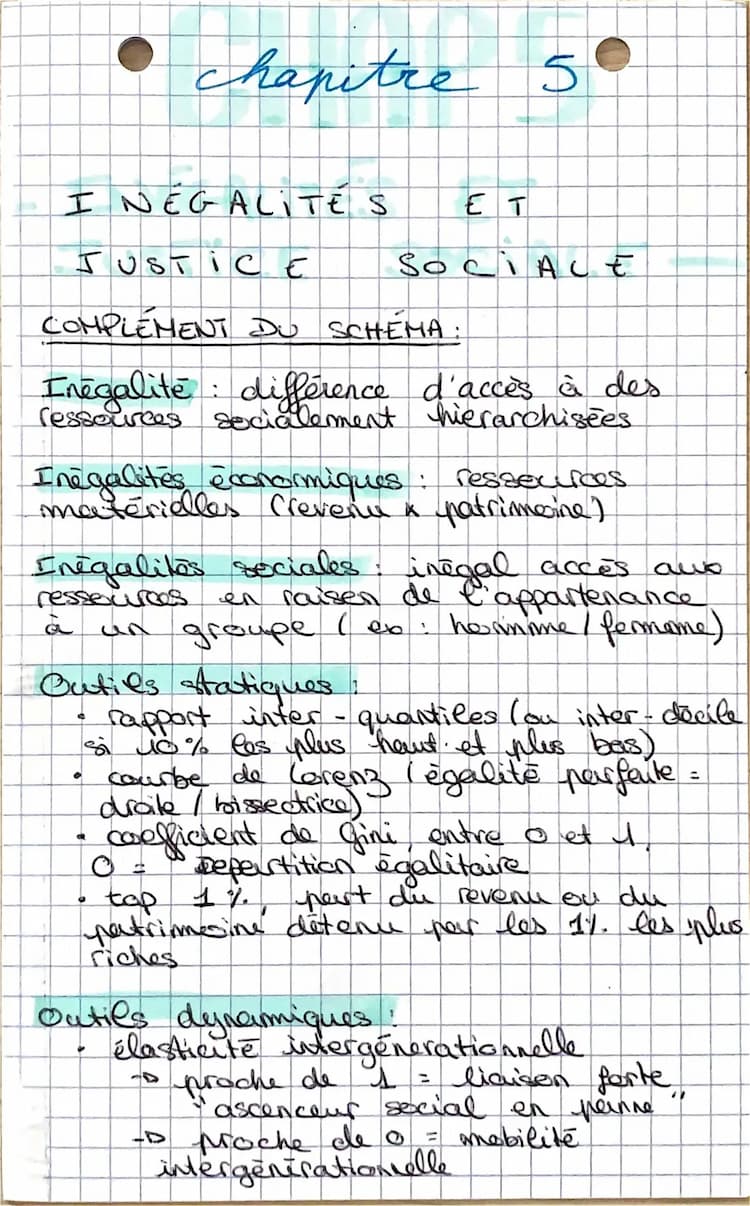 chapitre 5
INÉGALITÉS ET
JUSTICE SOCIALE
COMPLÉMENT DU SCHÉMA :
Inégalité : différence d'accès à des
ressources socialement hierarchisées
Inégalités économiques : ressources
matérielles (revenu x patrimoine)
Inégalités sociales : inégal accès aux
ressources en raison de l'appartenance
à un groupe (ex : homme / femme)
Outils statiques :
• rapport inter-quantiles (ou inter-décile
si 10% les plus haut et plus bas)
• courbe de Lorenz (égalité parfaite =
droite / bissectrice)
• coefficient de Gini, entre 0 et 1.
0 = repartition égalitaire
• top 1%, part du revenu ou du
patrimoine détenu par les 1% les plus
riches
Outils dynamiques :
• élasticité intergénerationnelle
→ proche de 1 = liaison forte,
"ascenceur social en panne"
→ proche de 0 = mobilité
intergénirationnelle